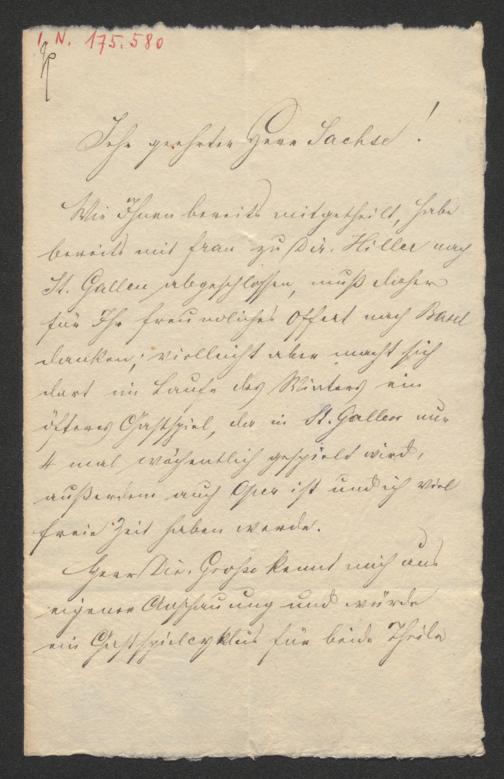 I. N. 175.580
Sehr geehrter Herr Sachse!
Wie Ihnen bereits mitgetheilt, habe
bereits mit Frau Dir. Hiller nach
St. Gallen abgeschlossen, muß daher
für Ihr freundliches Offert nach Basel
danken; vielleicht aber macht sich
dort im Laufe des Winters ein
öfteres Gastspiel, da in St. Gallen nur
4 mal wöchentlich gespielt wird,
außerdem auch Oper ist und ich viel
freie Zeit haben werde.
Herr Dir. Große kennt mich aus
eigener Anschauung und würde
ein Gastspielcyklus für beide Theile